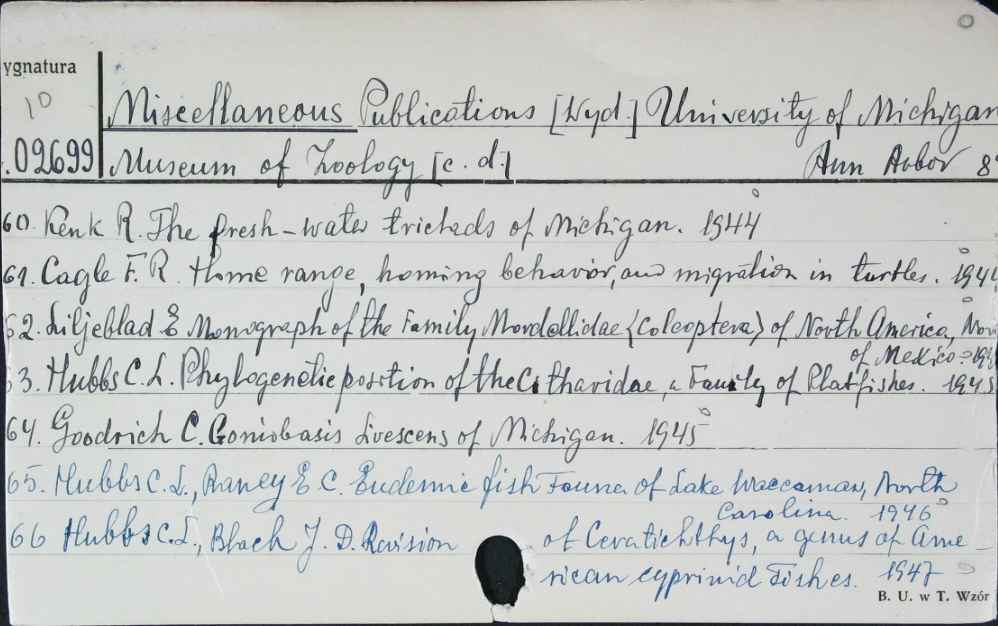 ygnatura
10
.02699
Miscellaneous Publications [Wyd.] University of Michigan
Museum of Zoology [c. d.] Ann Arbor 8°
60. Kenk R. The fresh-water triclads of Michigan. 1944
61. Cagle F. R. Home range, homing behavior, and migration in turtles. 194
62. Liljeblad E Monograph of the Family Mordellidae <Coleoptera> of North America,
of Mexico
63. Hubbs C. L. Phylogenetic position of the Citharidae, a Family of Flatfishes. 1945
64. Goodrich C. Goniobasis Livescens of Michigan. 1945
65. Hubbs C. L., Raney E. C. Endemic fish Fauna of Lake Waccamaw, North
Carolina. 1946
66 Hubbs C. L., Black J. D. Revision of Ceratichthys, a genus of Ame-
rican cyprinid Fishes. 1947
B. U. w T. Wzór